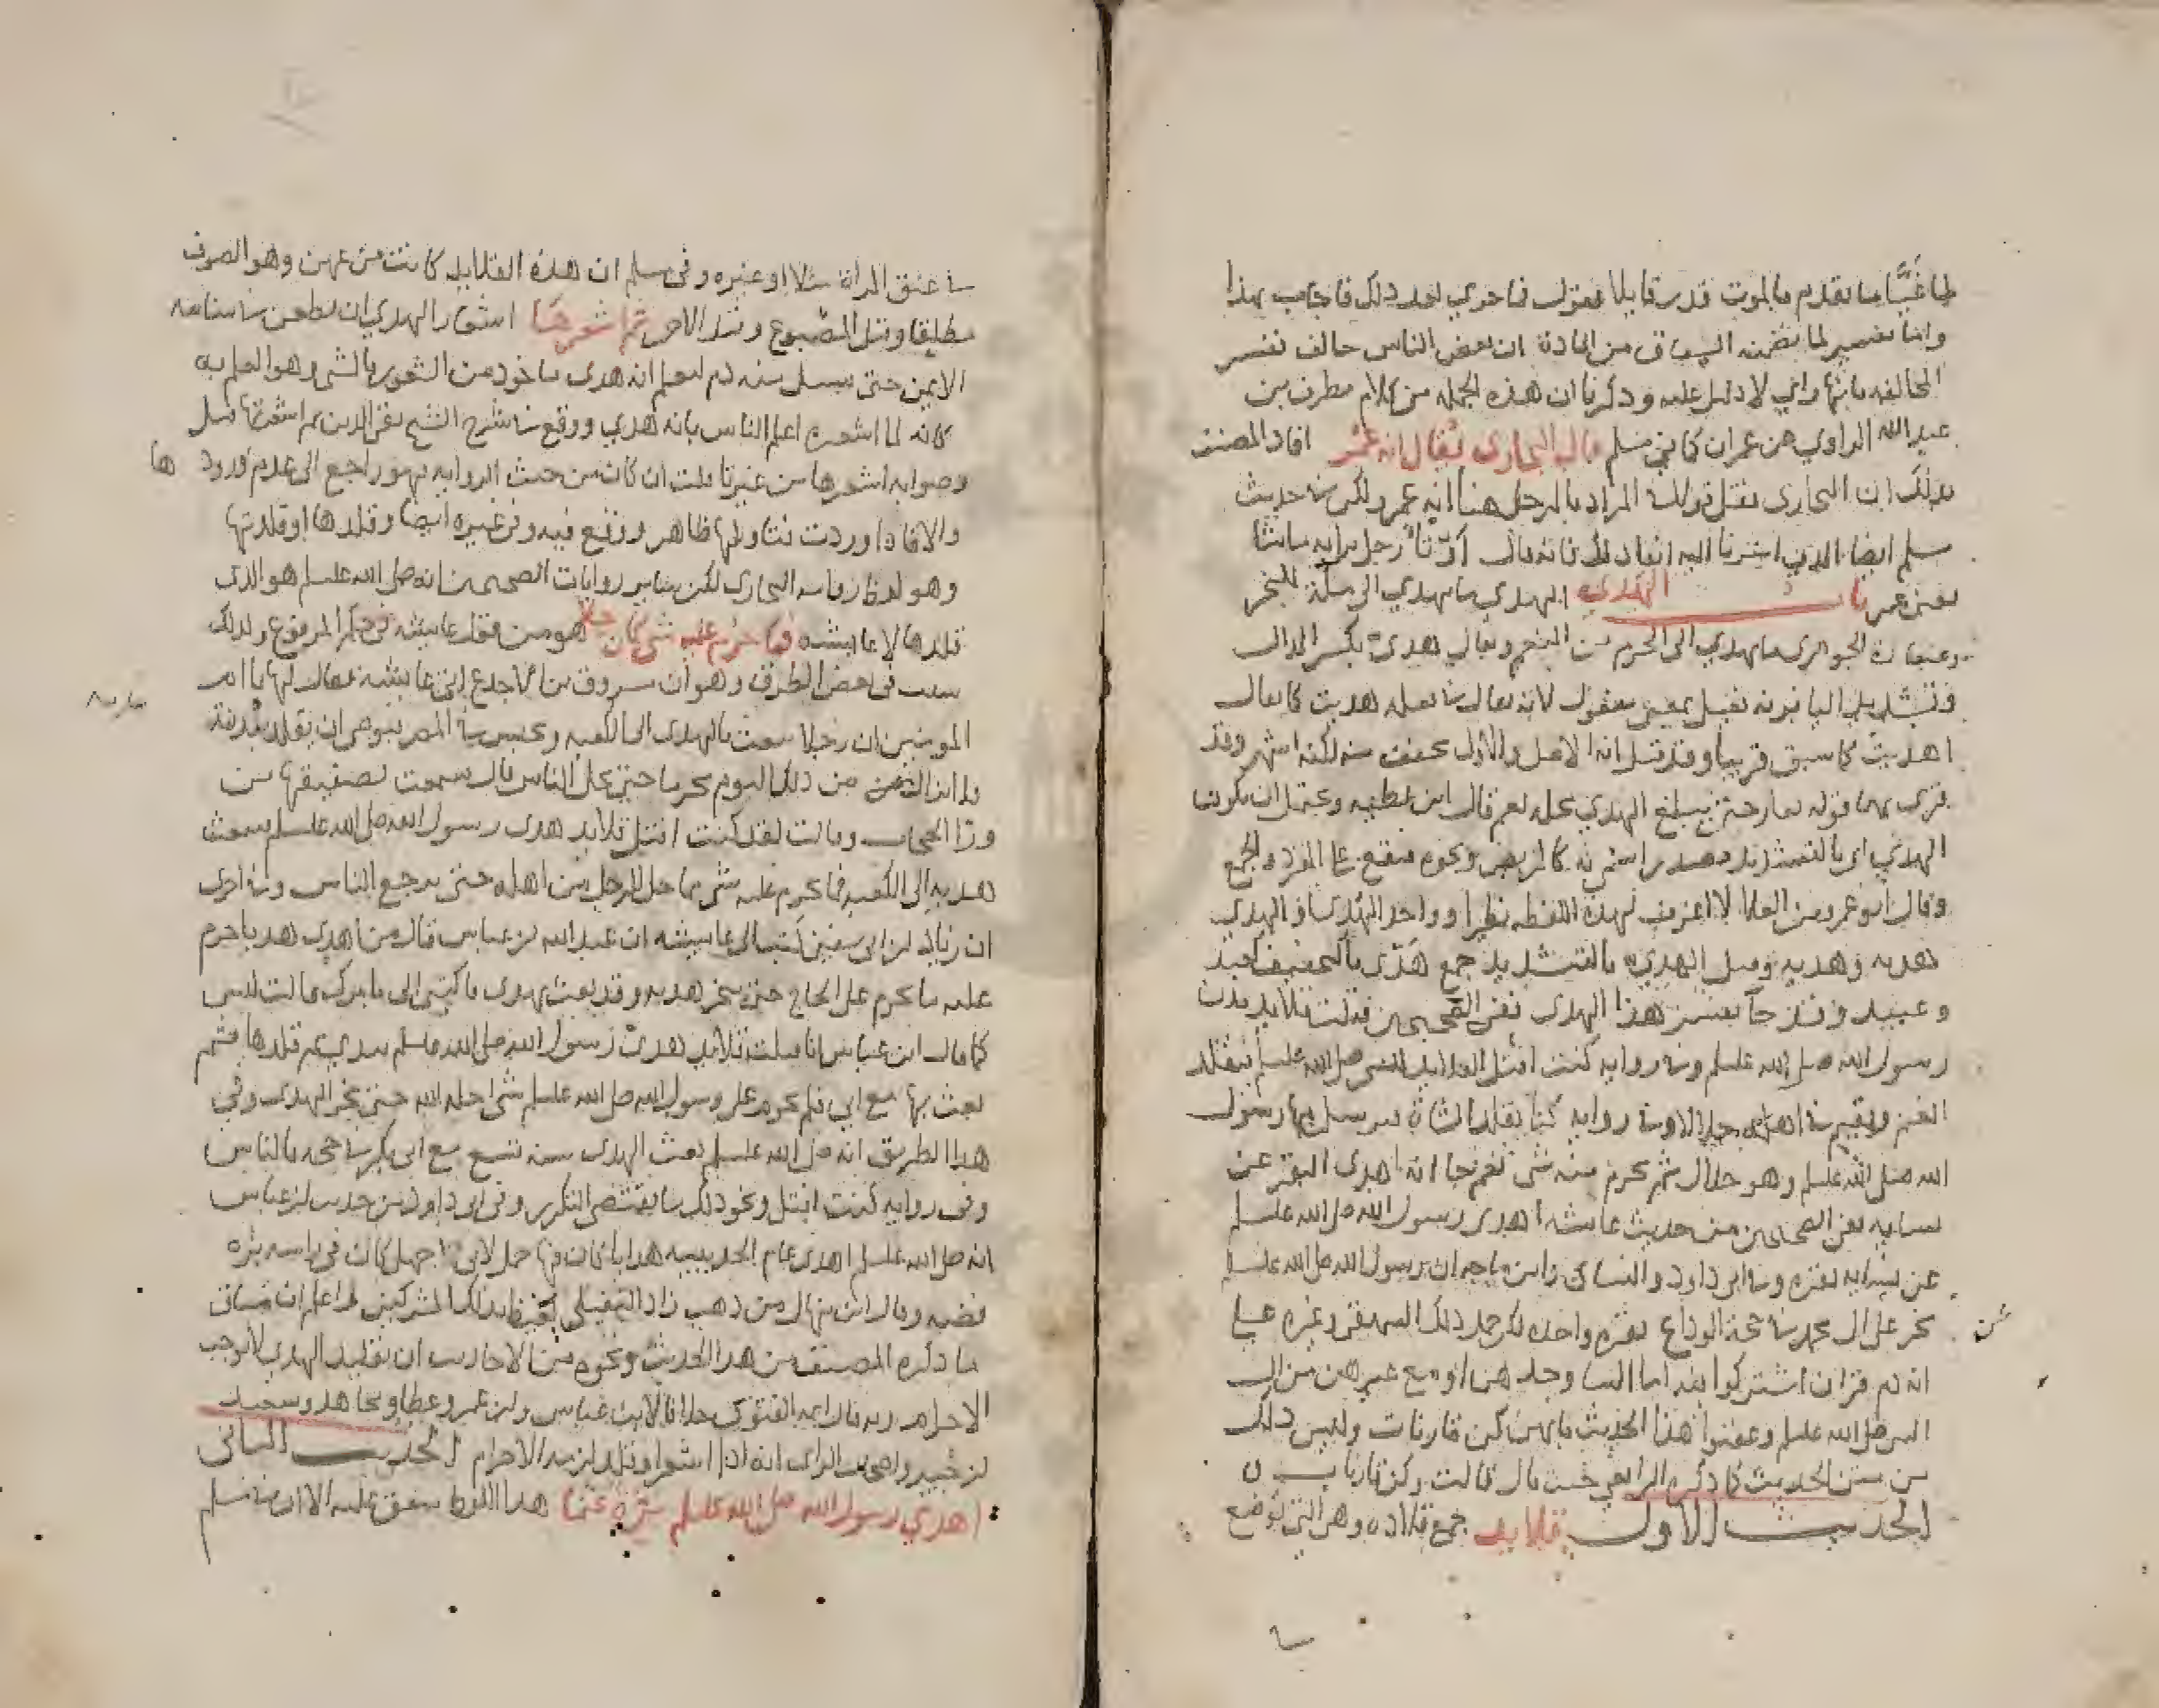 لما غيا ما تقدم بالموت قدر قايلا يقول فما جري بعد ذلك فاجاب بهذا
وانما تفسير لما تضمنه السياق من المادة ان بعض الناس خالف تفسير
المخالفه بانها راي لا دليل عليه وذكرنا ان هذه الجمله من كلام مطرف بن
عبد الله الراوي عن عمران كما في مسلم قال البخاري يقال انه عمر افاد المصنف
بذلك ان البخاري نقل قول ان المراد بالرجل هنا انه عمر ولكن في حديث
مسلم ايضا الذي اشرنا اليه افاد ذلك فانه قال رجل برايه ما شا
يعني عمر باب الهدي الهدي ما يهدي الى مكة لينحر
وعبارة الجوهري ما يهدي الى الحرم من النعم ويقال هدي بكسر الدال
وتشديد اليا فوزنه فعيل بمعنى مفعول لانه يقال في فعله هديت كما يقال
اهديت كما سبق قريبا وقد قيل انه الاصل والاول مخفف منه لكنه اشهر وقد
قري بهما قوله تعالى حتى يبلغ الهدي محله نعم قال ابن عطيه ويحتمل ان يكون
الهدي اي بالتشديد مصدرا سمي به كالرهن ونحوه فيقع على المفرد والجمع
وقال ابو عمرو بن العلا لا اعرف لهذه اللفظه نظيرا وواحد الهدي او الهدي
هديه وهديه وقيل الهدي بالتشديد جمع هدي بالتخفيف كعبد
وعبيد وقد جا تفسير هذا الهدي ففي الصحيحين فتلت قلايد بدن
رسول الله صلى الله عليه وسلم وفي روايه كنت افتل القلايد للنبي صلى الله عليه وسلم فيقلد
الغنم ويقيم في اهله حلالا وفي روايه كنا نقلد الشاة فيرسل بها رسول
الله صلى الله عليه وسلم وهو حلال لم يحرم منه شي نعم جا انه اهدى البقر عن
نسايه ففي الصحيحين من حديث عايشه اهدى رسول الله صلى الله عليه وسلم
عن نسايه بقره وفي ابي داود والنساي وابن ماجه ان رسول الله صلى الله عليه وسلم
نحر عن ال محمد في حجة الوداع بقره واحده لكن حمل ذلك البيهقي وغيره على
انه دم قران اشتركوا فيه اما النسا وحدهن او مع غيرهن من ال
النبي صلى الله عليه وسلم وعينوا هذا الحديث بانهن كن قارنات وليس ذلك
من متن الحديث كما ذكره الرافعي حيث قال قالت وكن قارنات
الحديث الاول قلايد جمع قلاده وهي التي توضع
في عنق المراة مثلا او غيره وفي مسلم ان هذه القلايد كانت من عهن وهو الصوف
مطلقا وقيل المصبوع وقيل الاحمر ثم اشعرها اشعار الهدي ان يطعن في سنامه
الايمن حتى يسيل منه دم ليعلم انه هدي ماخوذ من الشعور بالشي وهو العلم به
كانه لما اشعره اعلم الناس بانه هدي ووقع في شرح الشيخ تقي الدين ثم اشعرتها قيل
وصوابه اشعرها من غير تا قلت ان كان من حيث الروايه فهو راجع الى عدم ورودها
والا فاذا وردت فتاويلها ظاهر ووقع فيه وفي غيره ايضا وقلدها او قلدتها
وهو لفظ روايه البخاري لكن ساير روايات الصحيحين انه صلى الله عليه وسلم هو الذي
قلدها لا عايشه فما حرم عليه شي كان حلا هو من قول عايشه في حكم المرفوع ولذلك
سبب في بعض الطرق وهو ان مسروق بن الاجدع اتى عايشه فقال لها يا ام
المومنين ان رجلا يبعث بالهدي الى الكعبه ويجلس في المصر فيوصي ان يقلد بدنته
فلا يزال من ذلك اليوم محرما حتى يحل الناس قال سمعت تصفيقها من
ورا الحجاب وقالت لقد كنت افتل قلايد هدي رسول الله صلى الله عليه وسلم فيبعث
هديه الى الكعبه فما يحرم عليه شي مما حل للرجل من اهله حتى يرجع الناس وفي اخرى
ان زياد بن ابي سفين كتب الى عايشه ان عبد الله بن عباس قال من اهدى هديا حرم
عليه ما يحرم على الحاج حتى ينحر هديه وقد بعثت بهدي فاكتبي الي بامرك قالت ليس
كما قال ابن عباس انا فتلت قلايد هدي رسول الله صلى الله عليه وسلم بيدي ثم قلدها ثم
بعث بها مع ابي فلم يحرم على رسول الله صلى الله عليه وسلم شي احله الله حتى نحر الهدي وفي
هذا الطريق انه صلى الله عليه وسلم بعث الهدي سنه تسع مع ابي بكر في حجه بالناس
وفي روايه كنت افتل ونحو ذلك ما يقتضي التكرر وفي ابي داود من حديث ابن عباس
انه صلى الله عليه وسلم اهدى عام الحديبيه هدايا كان فيها جمل لابي جهل كان في راسه بره
فضه وقال ابن منهال من ذهب زاد النفيلي يغيظ بذلك المشركين واعلم ان مساق
ما ذكره المصنف من هذا الحديث ونحوه من الاحاديث ان تقليد الهدي لا يوجب
الاحرام وبه قال ايمه الفتوى خلافا لابن عباس وابن عمر وعطا ومجاهد وسعيد
بن جبير واصحاب الراي انه اذا اشعر او قلد لزمه الاحرام الحديث الثاني
اهدي رسول الله صلى الله عليه وسلم مرة غنما هذا اللفظ متفق عليه الا ان في مسلم